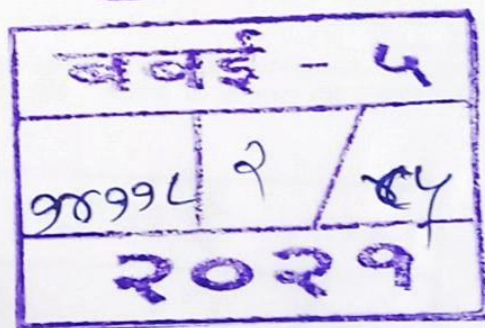 बबई - ५
१४११८ २ / ४५
२०२१